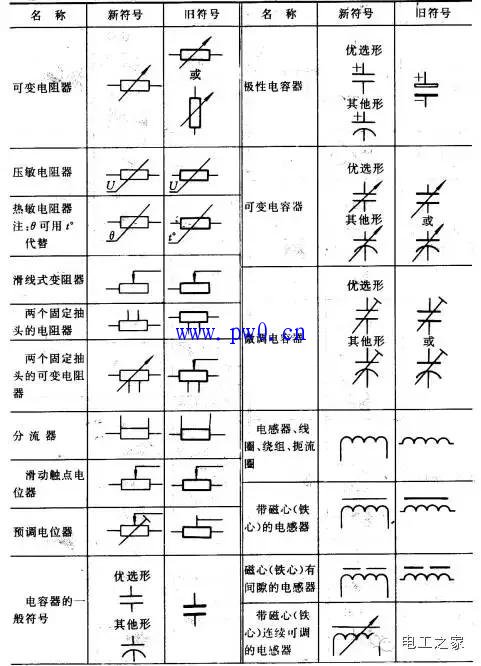 名 称 新符号 旧符号
可变电阻器
或
压敏电阻器
U U
热敏电阻器
注:θ可用t°
代替
θ t°
滑线式变阻器
两个固定抽
头的电阻器
两个固定抽
头的可变电阻
器
分流器
滑动触点电
位器
预调电位器
电容器的一
般符号
优选形
其他形
名 称 新符号 旧符号
极性电容器
优选形
+
其他形
+
+
可变电容器
优选形
其他形
或
微调电容器
优选形
其他形
或
电感器、线
圈、绕组、扼流
圈
带磁心(铁
心)的电感器
磁心(铁心)有
间隙的电感器
带磁心(铁
心)连续可调
的电感器
www.pw0.cn
电工之家